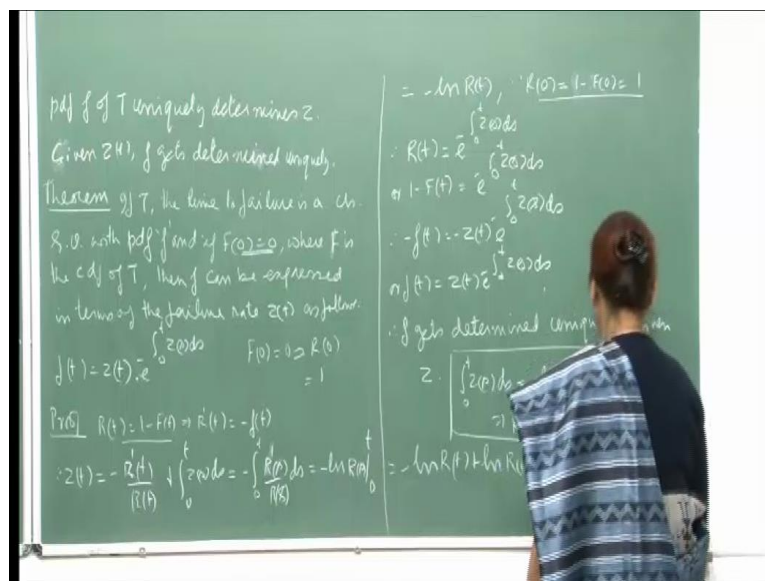 pdf f of T uniquely determines Z.
Given Z(t), f gets determined uniquely.
Theorem If T, the time to failure is a cts.
R.V. with pdf 'f' and if F(0)=0, where F is
the cdf of T, then f can be expressed
in terms of the failure rate Z(t) as follows.
f(t) = Z(t). e^-∫₀ᵗ Z(s)ds F(0)=0 ⇒ R(0)
= 1
Proof R(t) = 1-F(t) ⇒ R'(t) = -f(t)
∴ Z(t) = - R'(t)/R(t), ∫₀ᵗ Z(s)ds = -∫₀ᵗ R'(s)/R(s) ds = -ln R(s)|₀ᵗ
= -ln R(t), ∵ R(0) = 1-F(0) = 1
∴ R(t) = e^-∫₀ᵗ Z(s)ds
or 1-F(t) = e^-∫₀ᵗ Z(s)ds
∴ -f(t) = -Z(t) e^-∫₀ᵗ Z(s)ds
or f(t) = Z(t) e^-∫₀ᵗ Z(s)ds
∴ f gets determined
Z. ∫₀ᵗ Z(s)ds =
⇒
= -ln R(t) + ln R(